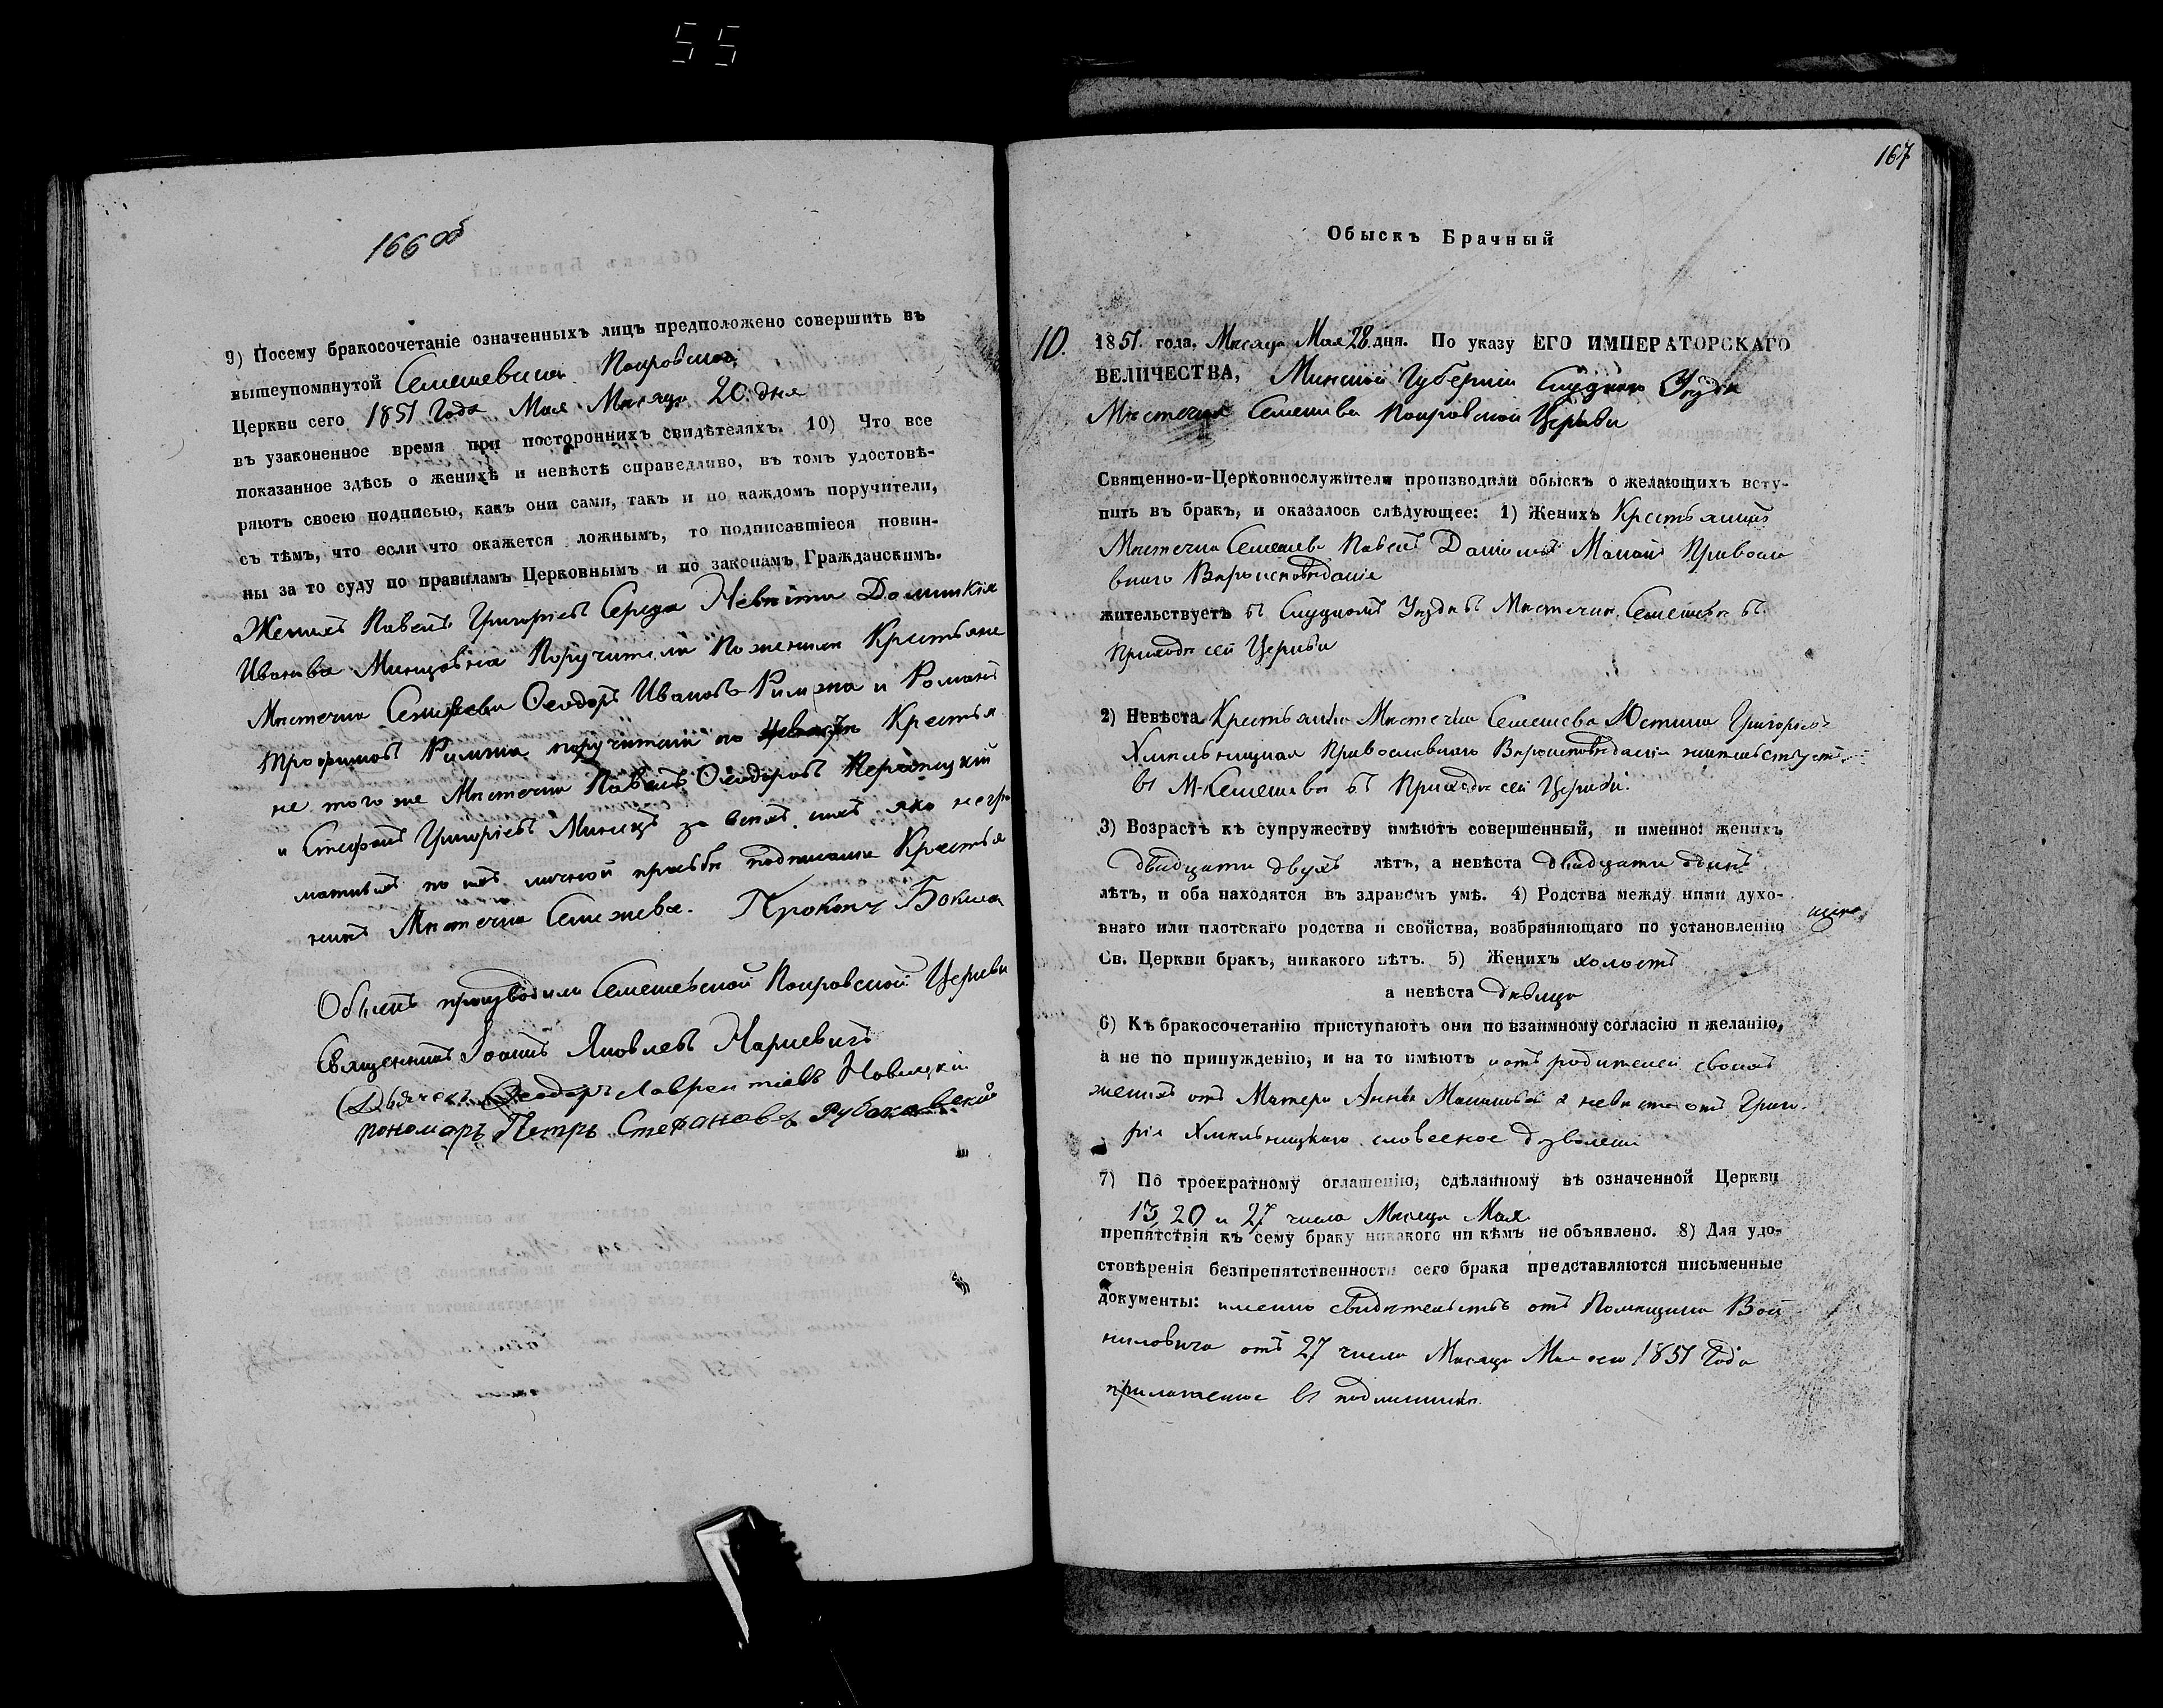 55
166 об
9) Посему бракосочетаніе означенныхъ лицъ предположено совершить въ
вышеупомянутой Семежевской Покровской
Церкви сего 1851 Года Мая Мѣсяца 20 дня
въ узаконенное время при постороннихъ свидѣтеляхъ. 10) Что все
показанное здѣсь о женихѣ и невѣстѣ справедливо, въ томъ удостовѣ-
ряютъ своею подписью, какъ они сами, такъ и по каждомъ поручители,
съ тѣмъ, что если что окажется ложнымъ, то подписавшіеся повин-
ны за то суду по правиламъ Церковнымъ и по законамъ Гражданскимъ.
Женихъ Павелъ Григорьевъ Середа Невѣста Домникія
Иванова Поручители По женихѣ Крестьяне
Мѣстечка Семежева Ѳеодоръ Ивановъ и Романъ
Трофимовъ поручители по невѣстѣ Крестья
не того же Мѣстечка Павелъ Ѳеодоровъ
и Стефанъ Григорьевъ за всѣхъ ихъ яко негра
мотныхъ по ихъ личной просьбѣ подписался Крестья
нинъ Мѣстечка Семежева. Прокопъ
Обыскъ производили Семежевской Покровской Церкви
Священникъ Іоаннъ Яковлевъ
Дьячекъ Ѳеодоръ Лаврентіевъ Новицкій
пономаръ Петръ Стефановъ
167
Обыскъ Брачный
10. 1851 года, Мѣсяца Мая 28 дня. По указу ЕГО ИМПЕРАТОРСКАГО
ВЕЛИЧЕСТВА, Минской Губерніи Слуцкаго Уѣзда
Мѣстечка Семежева Покровской Церкви
Священно-и-Церковнослужители производили обыскъ о желающихъ всту-
пить въ бракъ, и оказалось слѣдующее: 1) Женихъ Крестьянинъ
Мѣстечка Семежева Павелъ Даніиловъ Правосла
внаго Вѣроисповѣданія
жительствуетъ въ Слуцкомъ Уѣздѣ въ Мѣстечкѣ Семежевѣ въ
Приходѣ сей Церкви
2) Невѣста Крестьянка Мѣстечка Семежева Юстина Григорьева
Хмельницкая Православнаго Вѣроисповѣданія жительствуетъ
въ М. Семежевѣ въ Приходѣ сей Церкви.
3) Возрастъ къ супружеству имѣютъ совершенный, и именно: женихъ
двадцати двухъ лѣтъ, а невѣста двадцати одинъ
лѣтъ, и оба находятся въ здравомъ умѣ. 4) Родства между ними духо-
внаго или плотскаго родства и свойства, возбраняющаго по установленію
Св. Церкви бракъ, никакого нѣтъ. 5) Женихъ холостъ
а невѣста дѣвица
6) Къ бракосочетанію приступаютъ они по взаимному согласію и желанію,
а не по принужденію, и на то имѣютъ отъ родителей своихъ
женихъ отъ Матери Анны а невѣста отъ Григо
рія Хмельницкаго словесное дозволеніе
7) По троекратному оглашенію, сдѣланному въ означенной Церкви
13, 20 и 27 числа Мѣсяца Мая
препятствія къ сему браку никакого ни кѣмъ не объявлено. 8) Для удо-
стовѣренія безпрепятственности сего брака представляются письменные
документы: именно свидѣтельство отъ Помѣщика Вой
ниловича отъ 27 числа Мѣсяца Мая сего 1851 Года
приложенное въ подлинникѣ.